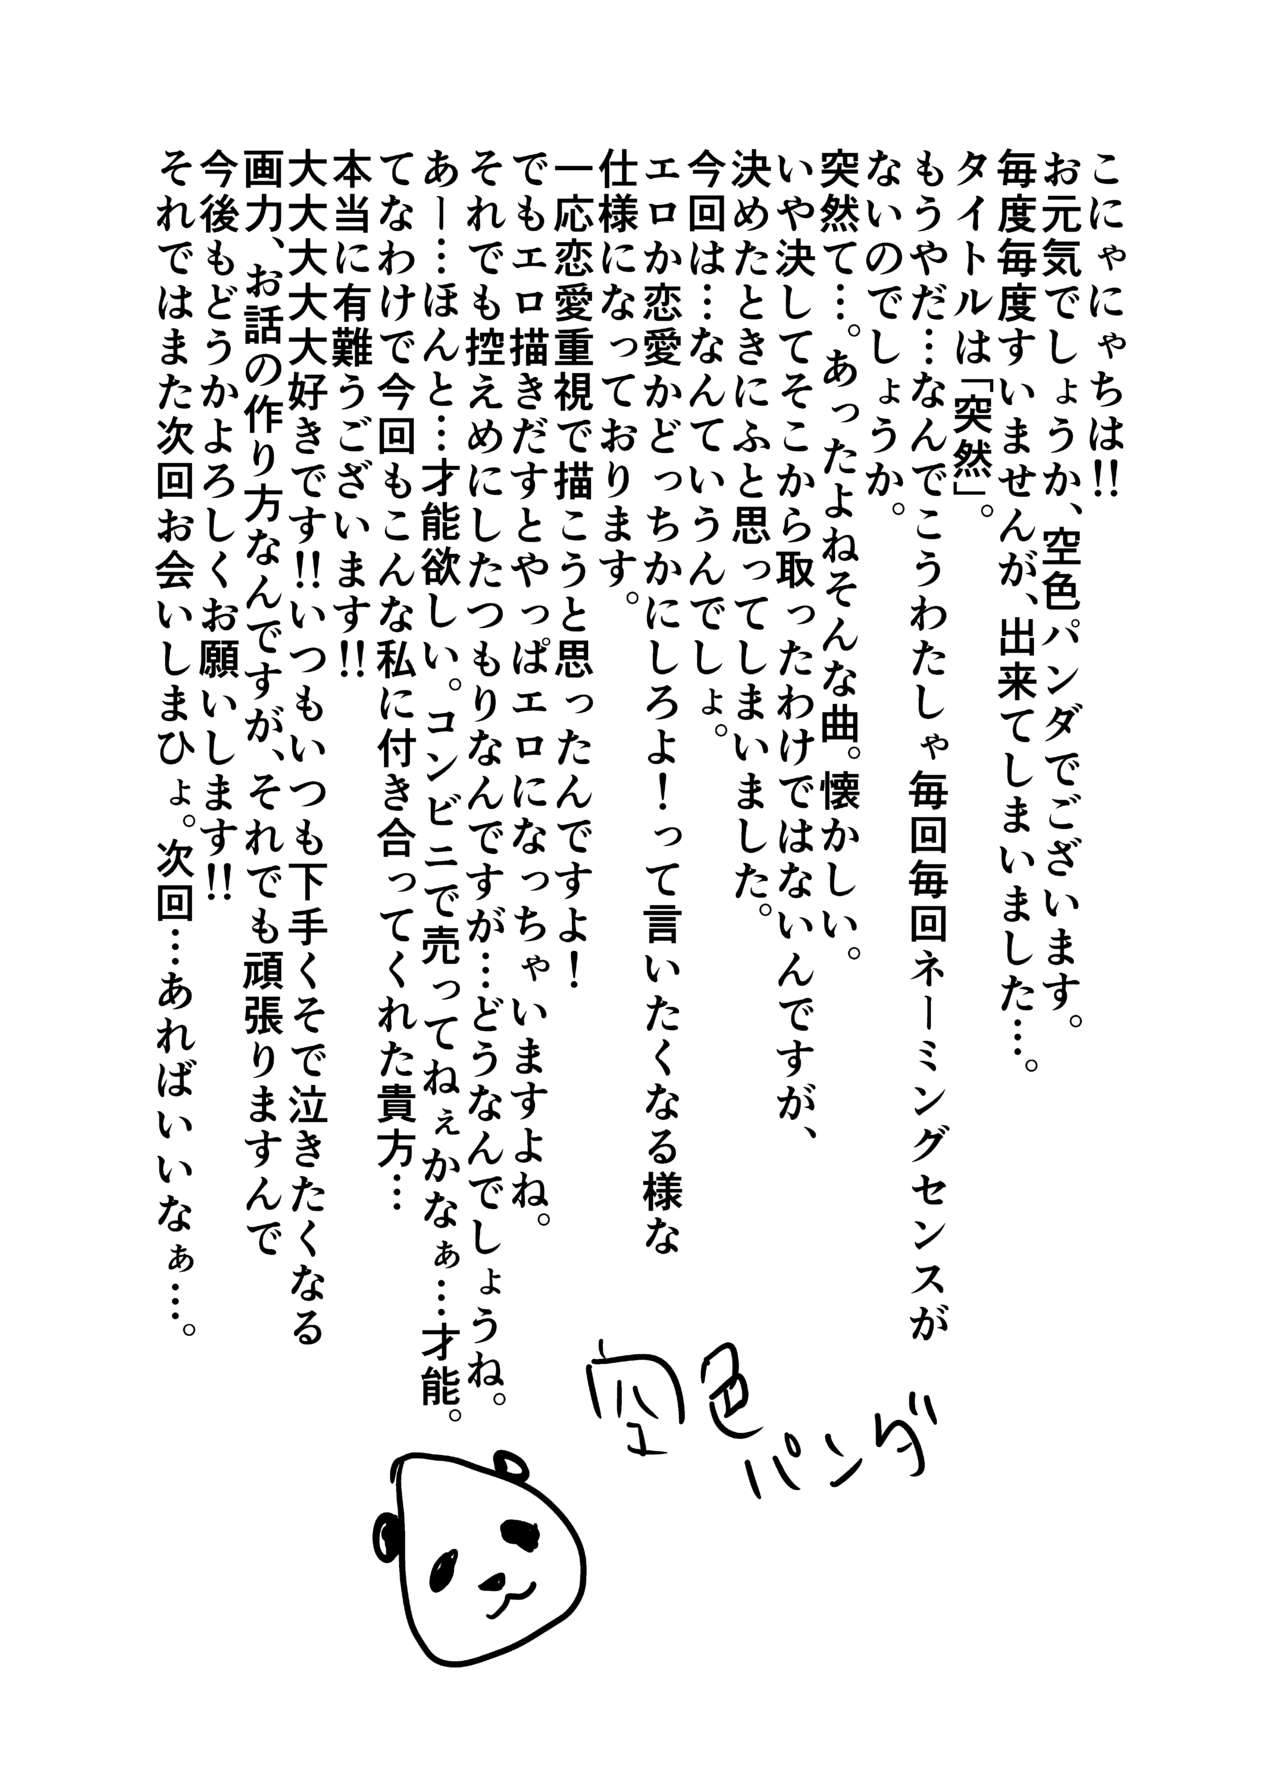 こにゃにゃちは!!
お元気でしょうか、空色パンダでございます。
毎度毎度すいませんが、出来てしまいました…。
タイトルは「突然」。
もうやだ…なんでこうわたしゃ毎回毎回ネーミングセンスが
ないのでしょうか。
突然て…。あったよねそんな曲。懐かしい。
いや決してそこから取ったわけではないんですが、
決めたときにふと思ってしまいました。
今回は…なんていうんでしょ。
エロか恋愛かどっちかにしろよ!って言いたくなる様な
仕様になっております。
一応恋愛重視で描こうと思ったんですよ!
でもエロ描きだすとやっぱエロになっちゃいますよね。
それでも控えめにしたつもりなんですが…どうなんでしょうね。
あー…ほんと…才能欲しい。コンビニで売ってねぇかなぁ…才能。
てなわけで今回もこんな私に付き合ってくれた貴方…
本当に有難うございます!!
大大大大大好きです!!いつもいつも下手くそで泣きたくなる
画力、お話の作り方なんですが、それでも頑張りますんで
今後もどうかよろしくお願いします!!
それではまた次回お会いしまひょ。次回…あればいいなぁ…。
空色パンダ